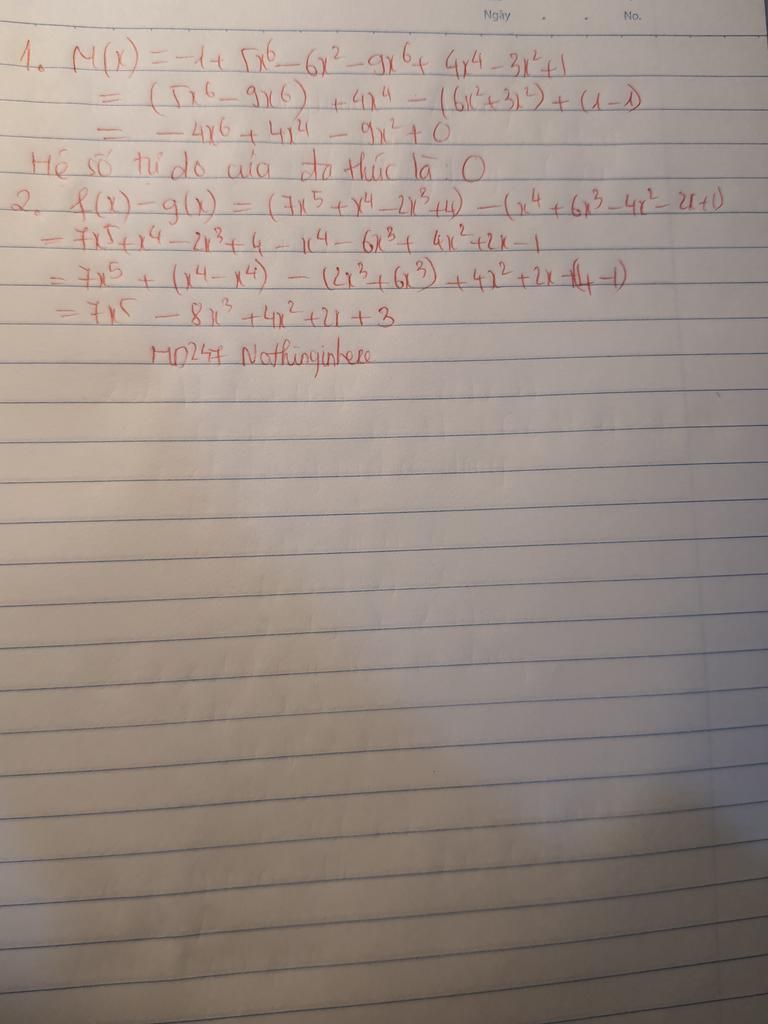 Ngày . . No.
1. M(x) = -1 + 5x⁶ - 6x² - 9x⁶ + 4x⁴ - 3x² + 1
= (5x⁶ - 9x⁶) + 4x⁴ - (6x² + 3x²) + (1 - 1)
= - 4x⁶ + 4x⁴ - 9x² + 0
Hệ số tự do của đa thức là 0
2. f(x) - g(x) = (7x⁵ + x⁴ - 2x³ + 4) - (x⁴ + 6x³ - 4x² - 2x + 1)
= 7x⁵ + x⁴ - 2x³ + 4 - x⁴ - 6x³ + 4x² + 2x - 1
= 7x⁵ + (x⁴ - x⁴) - (2x³ + 6x³) + 4x² + 2x + (4 - 1)
= 7x⁵ - 8x³ + 4x² + 2x + 3
HD247 Nothinginhere